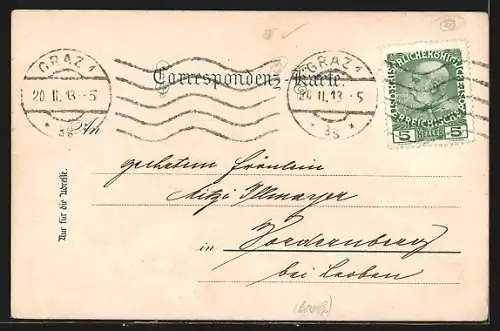 GRAZ 1
20. II. 13 - 5
* 3g *
GRAZ 1
20. II. 13 - 5
* 3g *
5 HELLER 5
Correspondenz-Karte.
An
Fräulein
Mitzi Illmayer
in Vordernberg
bei Leoben
Nur für die Adresse.